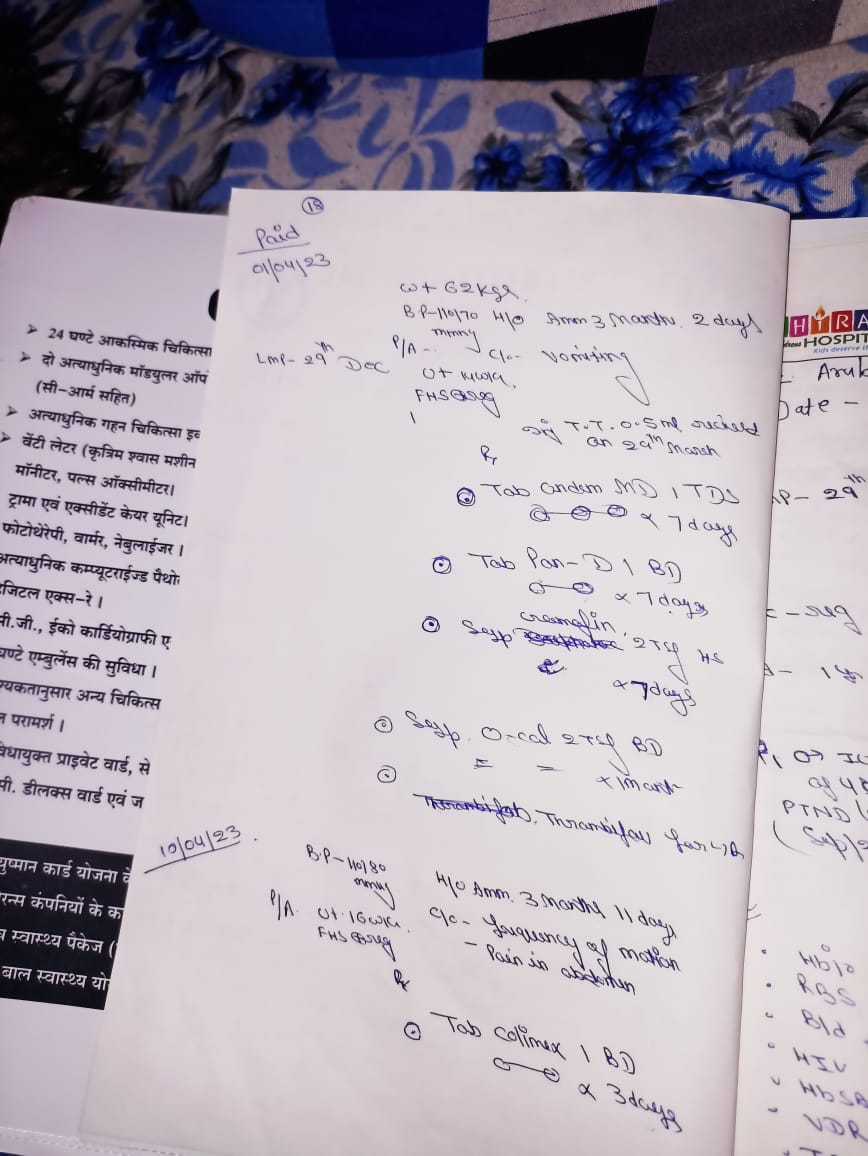 18
Paid
01/04/23
wt 62 Kgs.
BP-110/70 H/O Amm 3 Months. 2 days
mmHg
P/A -. C/o- Vomiting
LMP- 29th Dec
Ut 14wks.
FHS reg
T.T. 0.5 ml
on 29th March
Rx
Tab MD 1 TDS
x 7 days
Tab Pan-D 1 BD
x 7 days
cremafin
Syp 2 TSf HS
x 7 days
Syp. O-cal 2 TSf BD
x 1 Month
10/04/23.
B.P-110/80
mmHg
H/O Amm. 3 Months 11 days
P/A. Ut. 16wks. C/o - frequency of motion
FHS reg - Pain in abdomen
Rx
Tab Colimex 1 BD
x 3 days
➢ 24 घण्टे आकस्मिक चिकित्सा
➢ दो अत्याधुनिक मॉडयुलर ऑप
(सी-आर्म सहित)
➢ अत्याधुनिक गहन चिकित्सा इव
➢ वेंटी लेटर (कृत्रिम श्वास मशीन
मॉनीटर, पल्स ऑक्सीमीटर।
ट्रामा एवं एक्सीडेंट केयर यूनिट।
फोटोथेरेपी, वार्मर, नेबुलाईजर।
अत्याधुनिक कम्प्यूटराईज्ड पैथो
जिटल एक्स-रे।
सी.जी., ईको कार्डियोग्राफी ए
घण्टे एम्बुलेंस की सुविधा।
यकतानुसार अन्य चिकित्स
परामर्श।
वेधायुक्त प्राइवेट वार्ड, से
पी. डीलक्स वार्ड एवं ज
युष्मान कार्ड योजना वे
रन्स कंपनियों के क
व स्वास्थ्य पैकेज (
बाल स्वास्थ्य यो
HIRA
HOSPIT
Kids deserve th
Date -
P- 29th
reg
PTND
HbJo
RBS
Bld
HIV
HbSA
VDR